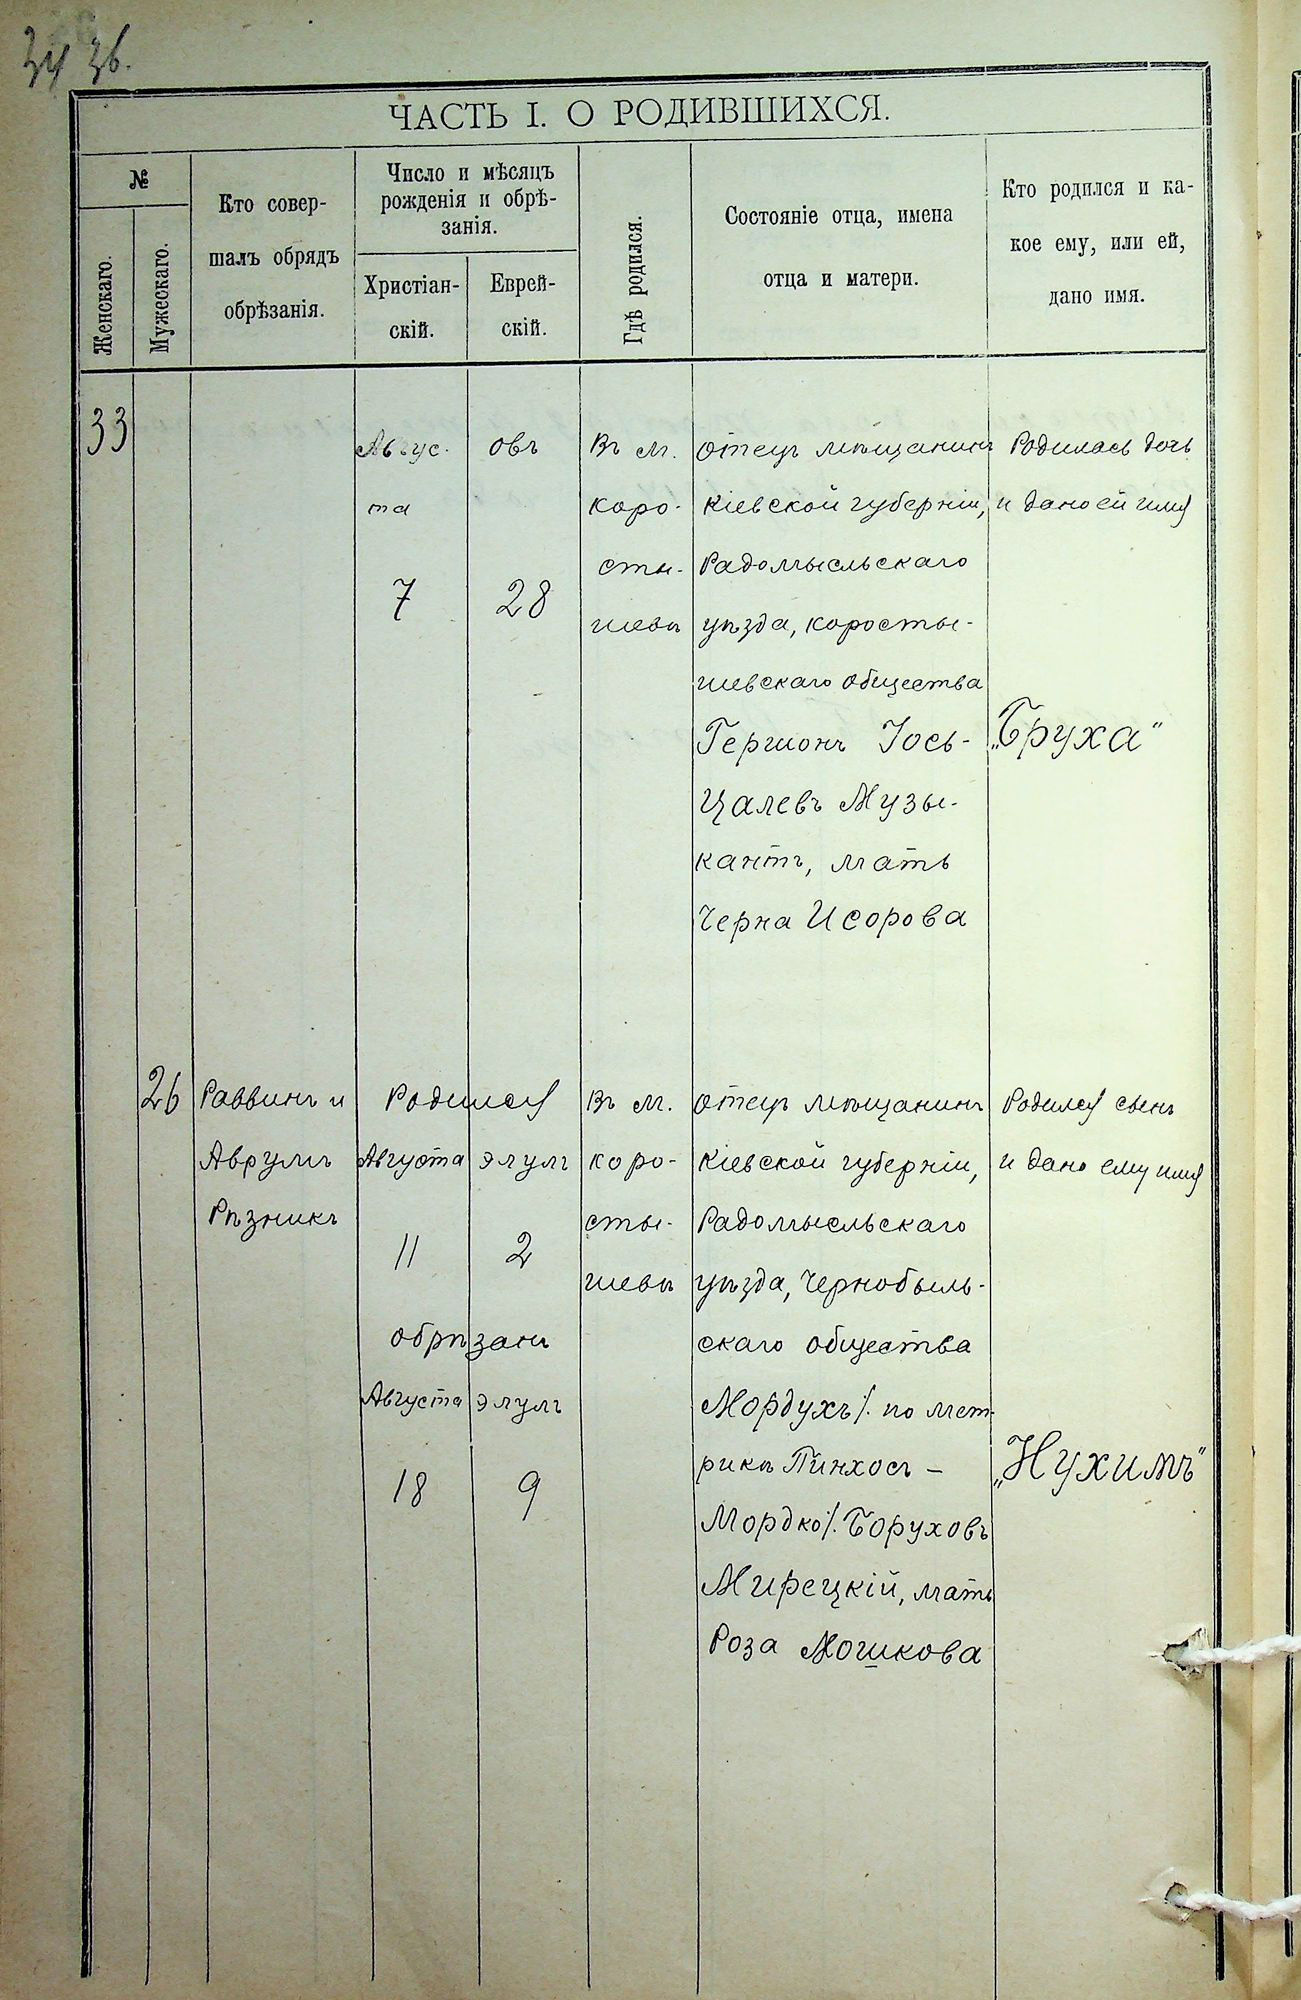 34 36.
ЧАСТЬ I. О РОДИВШИХСЯ.
№
Женскаго.
Мужескаго.
Кто совер-
шалъ обрядъ
обрѣзанія.
Число и мѣсяцъ
рожденія и обрѣ-
занія.
Христіан-
скій.
Еврей-
скій.
Гдѣ родился.
Состояніе отца, имена
отца и матери.
Кто родился и ка-
кое ему, или ей,
дано имя.
33
Авгус-
та
7
овъ
28
Въ м.
Коро-
сты-
шевѣ
Отецъ мѣщанинъ
Кіевской губерніи,
Радомысльскаго
уѣзда, Коросты-
шевскаго общества
Гершонъ Іось-
Цалевъ Музы-
кантъ, мать
Черна Исорова
Родилась дочь
и дано ей имя
„Бруха“
26
Раввинъ и
Аврумъ
Рѣзникъ
Родился
Августа элулъ
11 2
обрѣзанъ
Августа элулъ
18 9
Въ м.
Коро-
сты-
шевѣ
Отецъ мѣщанинъ
Кіевской губерніи,
Радомысльскаго
уѣзда, Чернобыль-
скаго общества
Мордухъ /. по мет-
рикѣ Пинхосъ –
Мордко /. Боруховъ
Мирецкій, мать
Роза Мошкова
Родился сынъ
и дано ему имя
„Нухимъ“